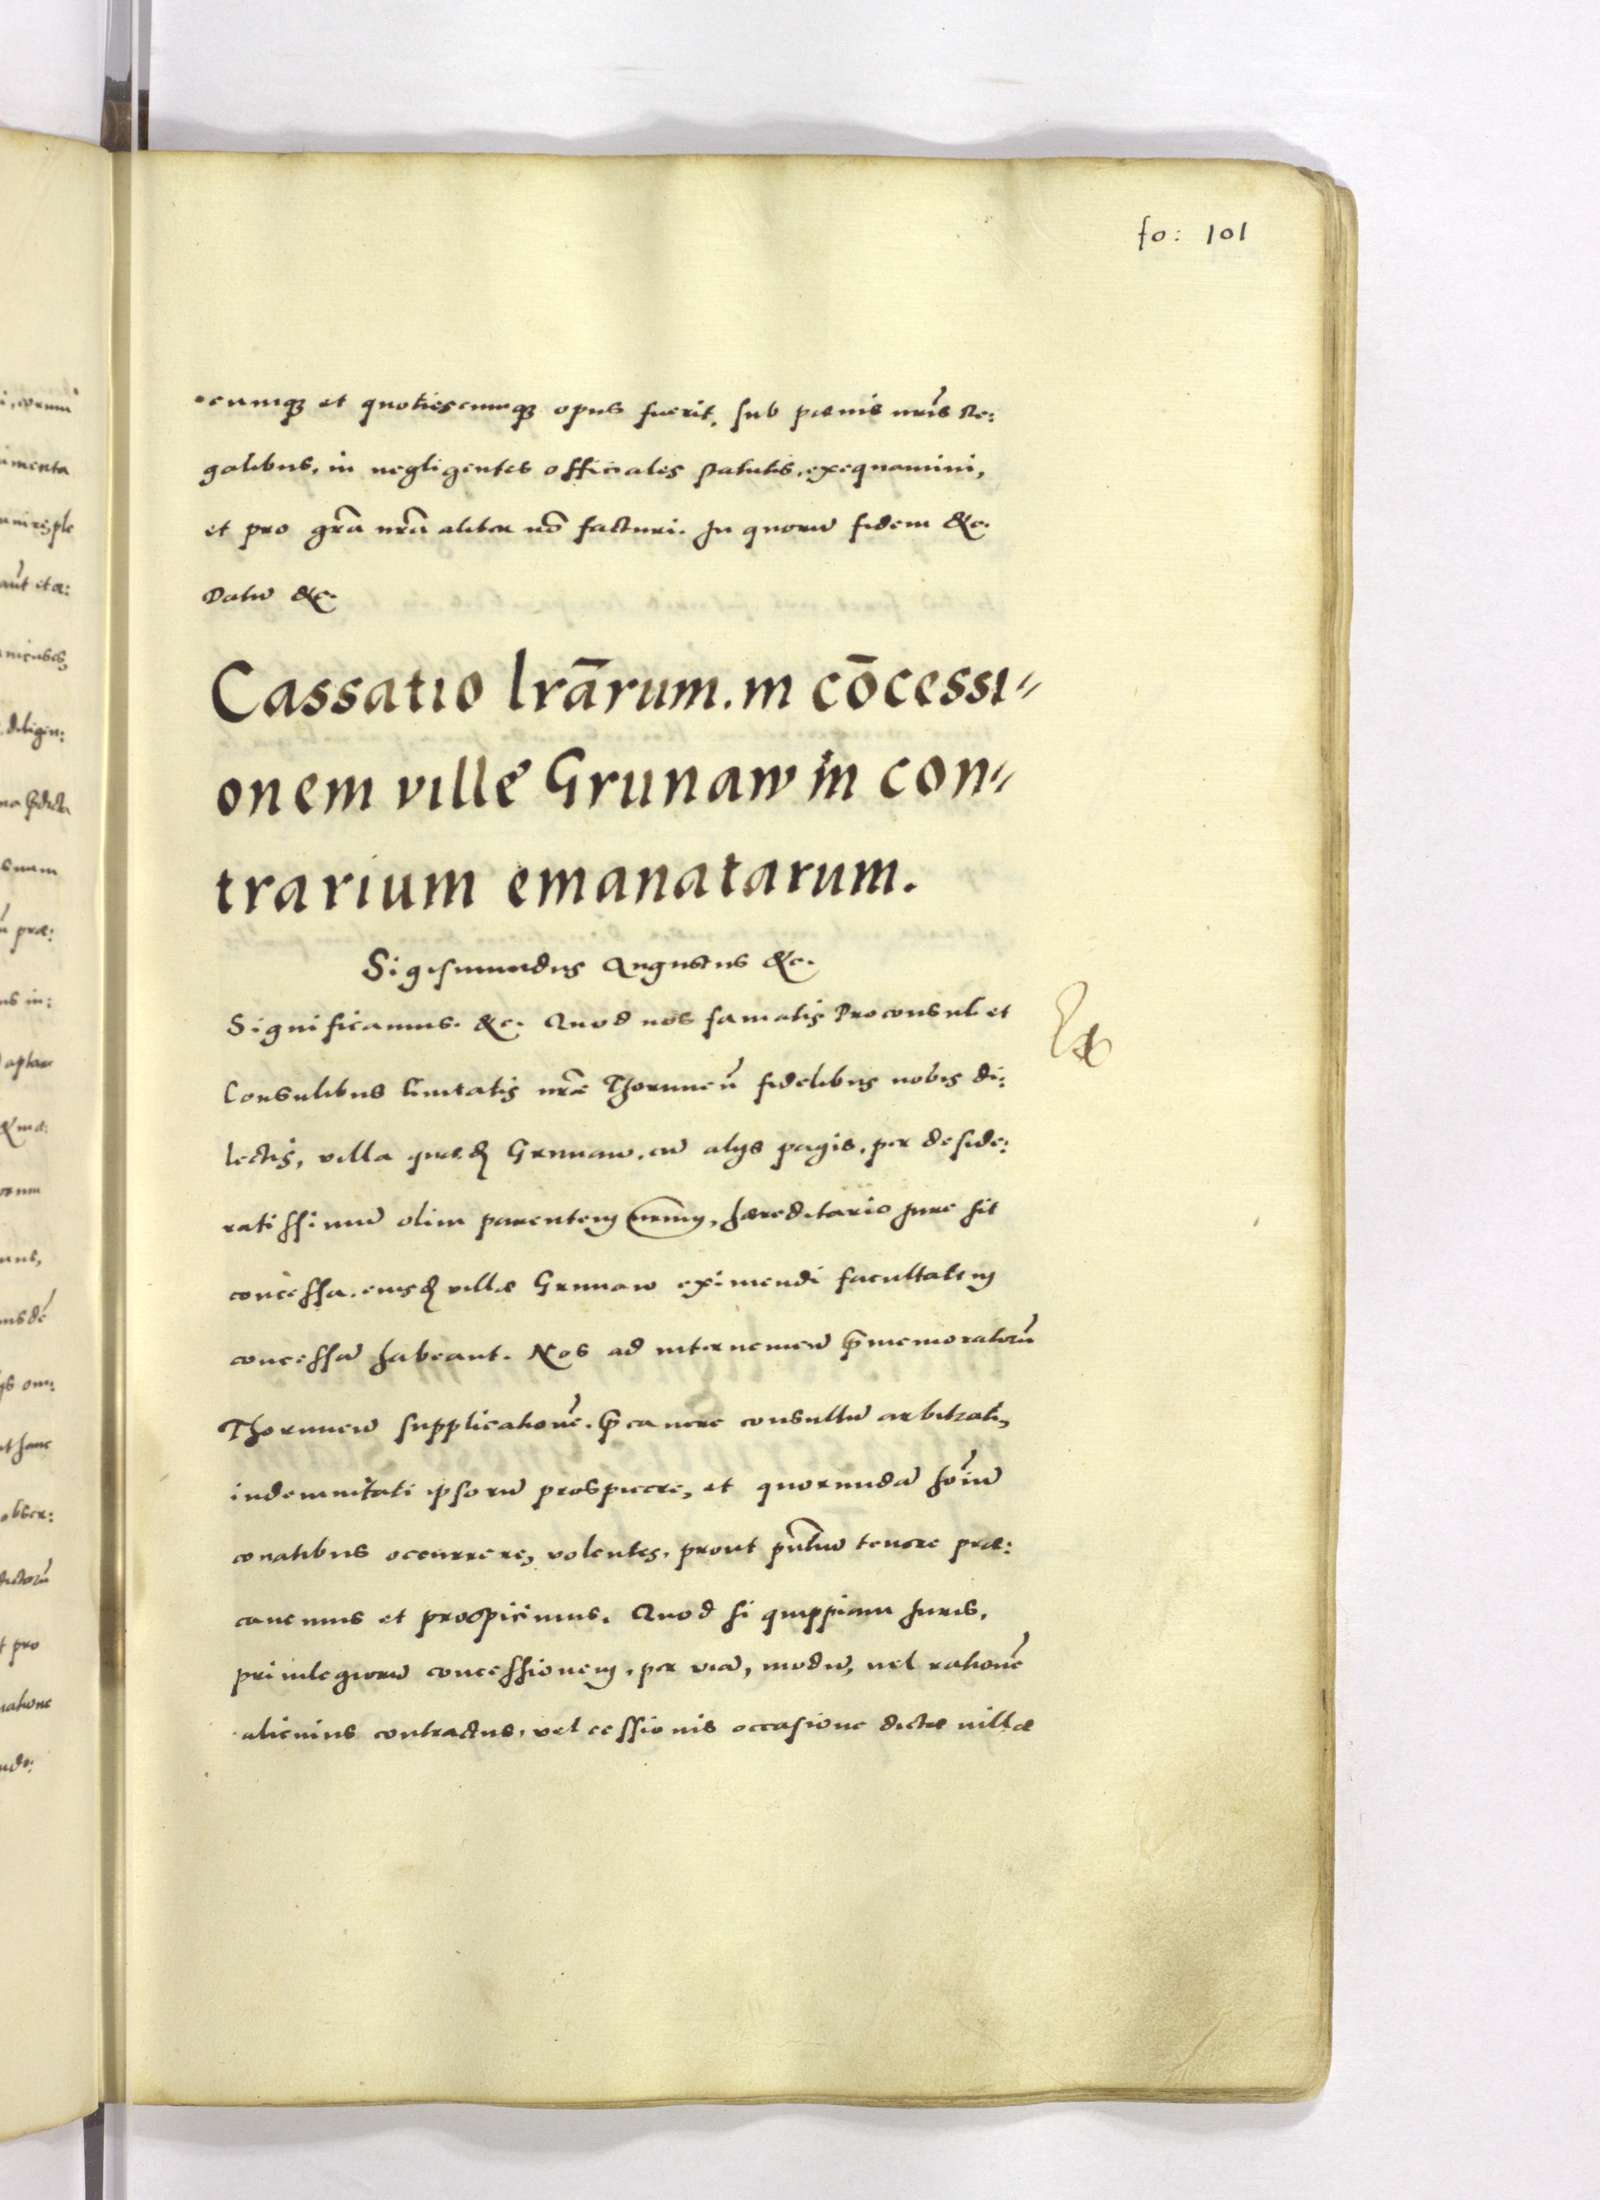 fo: 101
cumq; et quotiescunq; opus fuerit, sub pœnis nr̃is Re:
galibus, in negligentes officiales statutis, exequamini,
et pro gr̃a nr̃a aliter nõ facturi. In quorũ fidem &c.
Datũ &c.
Cassatio lr̃arum. in cõcessi⸗
onem villæ Grunaw in con⸗
trarium emanatarum.
Sigismundus Augustus &c.
Significamus. &c. Quod nos famatis Proconsuli et
Consulibus Ciuitatis nr̃æ Thorunẽn fidelibus nobis di:
lectis, villa quæd Grunaw, cũ alijs pagis, per deside:
ratissimũ olim parentem nr̃m, hæreditario Jure sit
concessa, eiusd villæ Grunaw eximendi facultatem
concessã habeant. Nos ad interuenien p̃memoratorũ
Thorunen supplicationẽ, p̃cauere consultũ arbitrati,
indemnitati ipsorũ prospicere, et quorundã hoĩum
conatibus occurrere, volentes, prout pñtiũ tenore præ:
cauemus et prospicimus. Quod si quippiam Juris,
priuilegiorũ concessionem, per viã, modũ, uel rationẽ
alicuius contractus, vel cessionis occasione dictæ uillæ